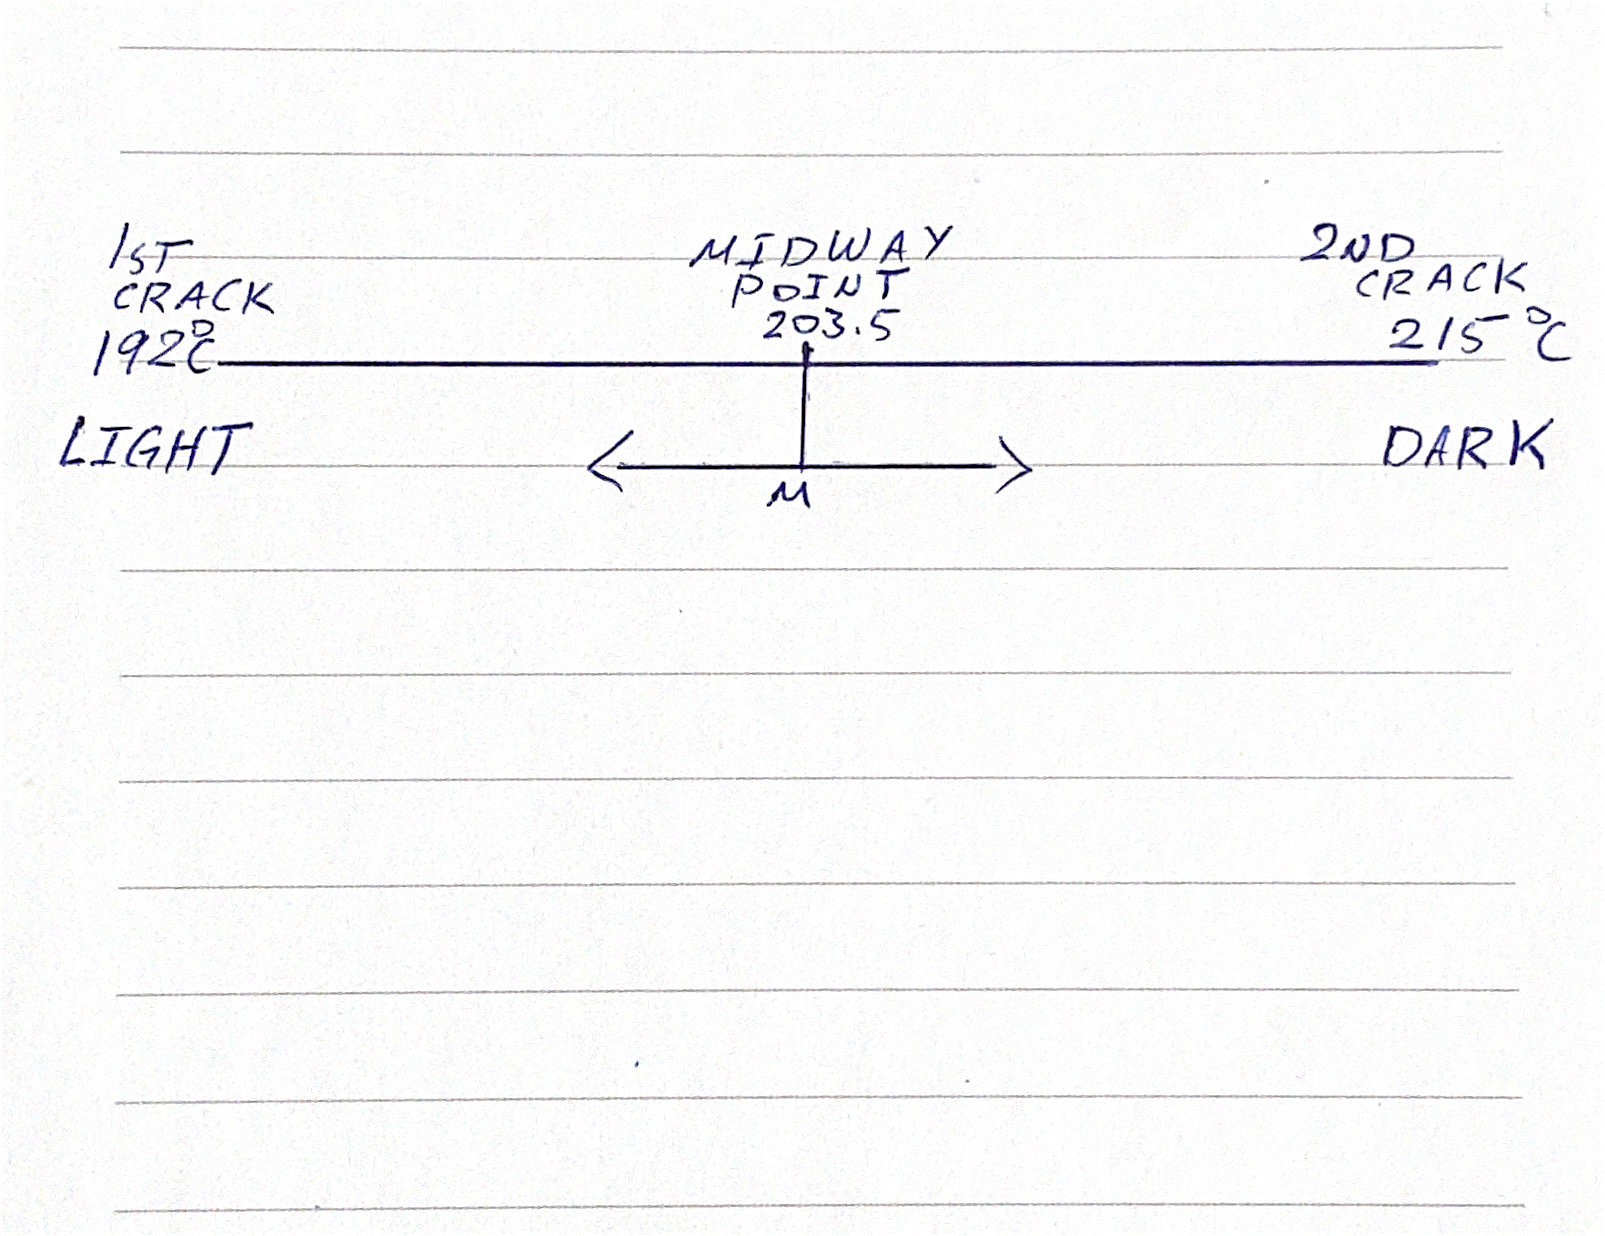 1ST
CRACK
192°C
MIDWAY
POINT
203.5
2ND
CRACK
215°C
LIGHT
M
DARK